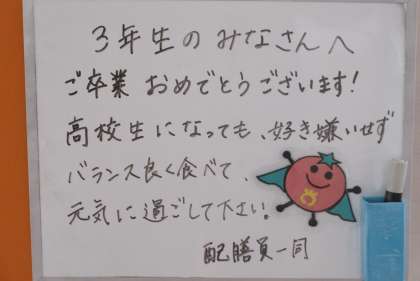 3年生のみなさんへ
ご卒業 おめでとうございます!
高校生になっても、好き嫌いせず
バランス良く食べて、
元気に過ごして下さい。
配膳員一同